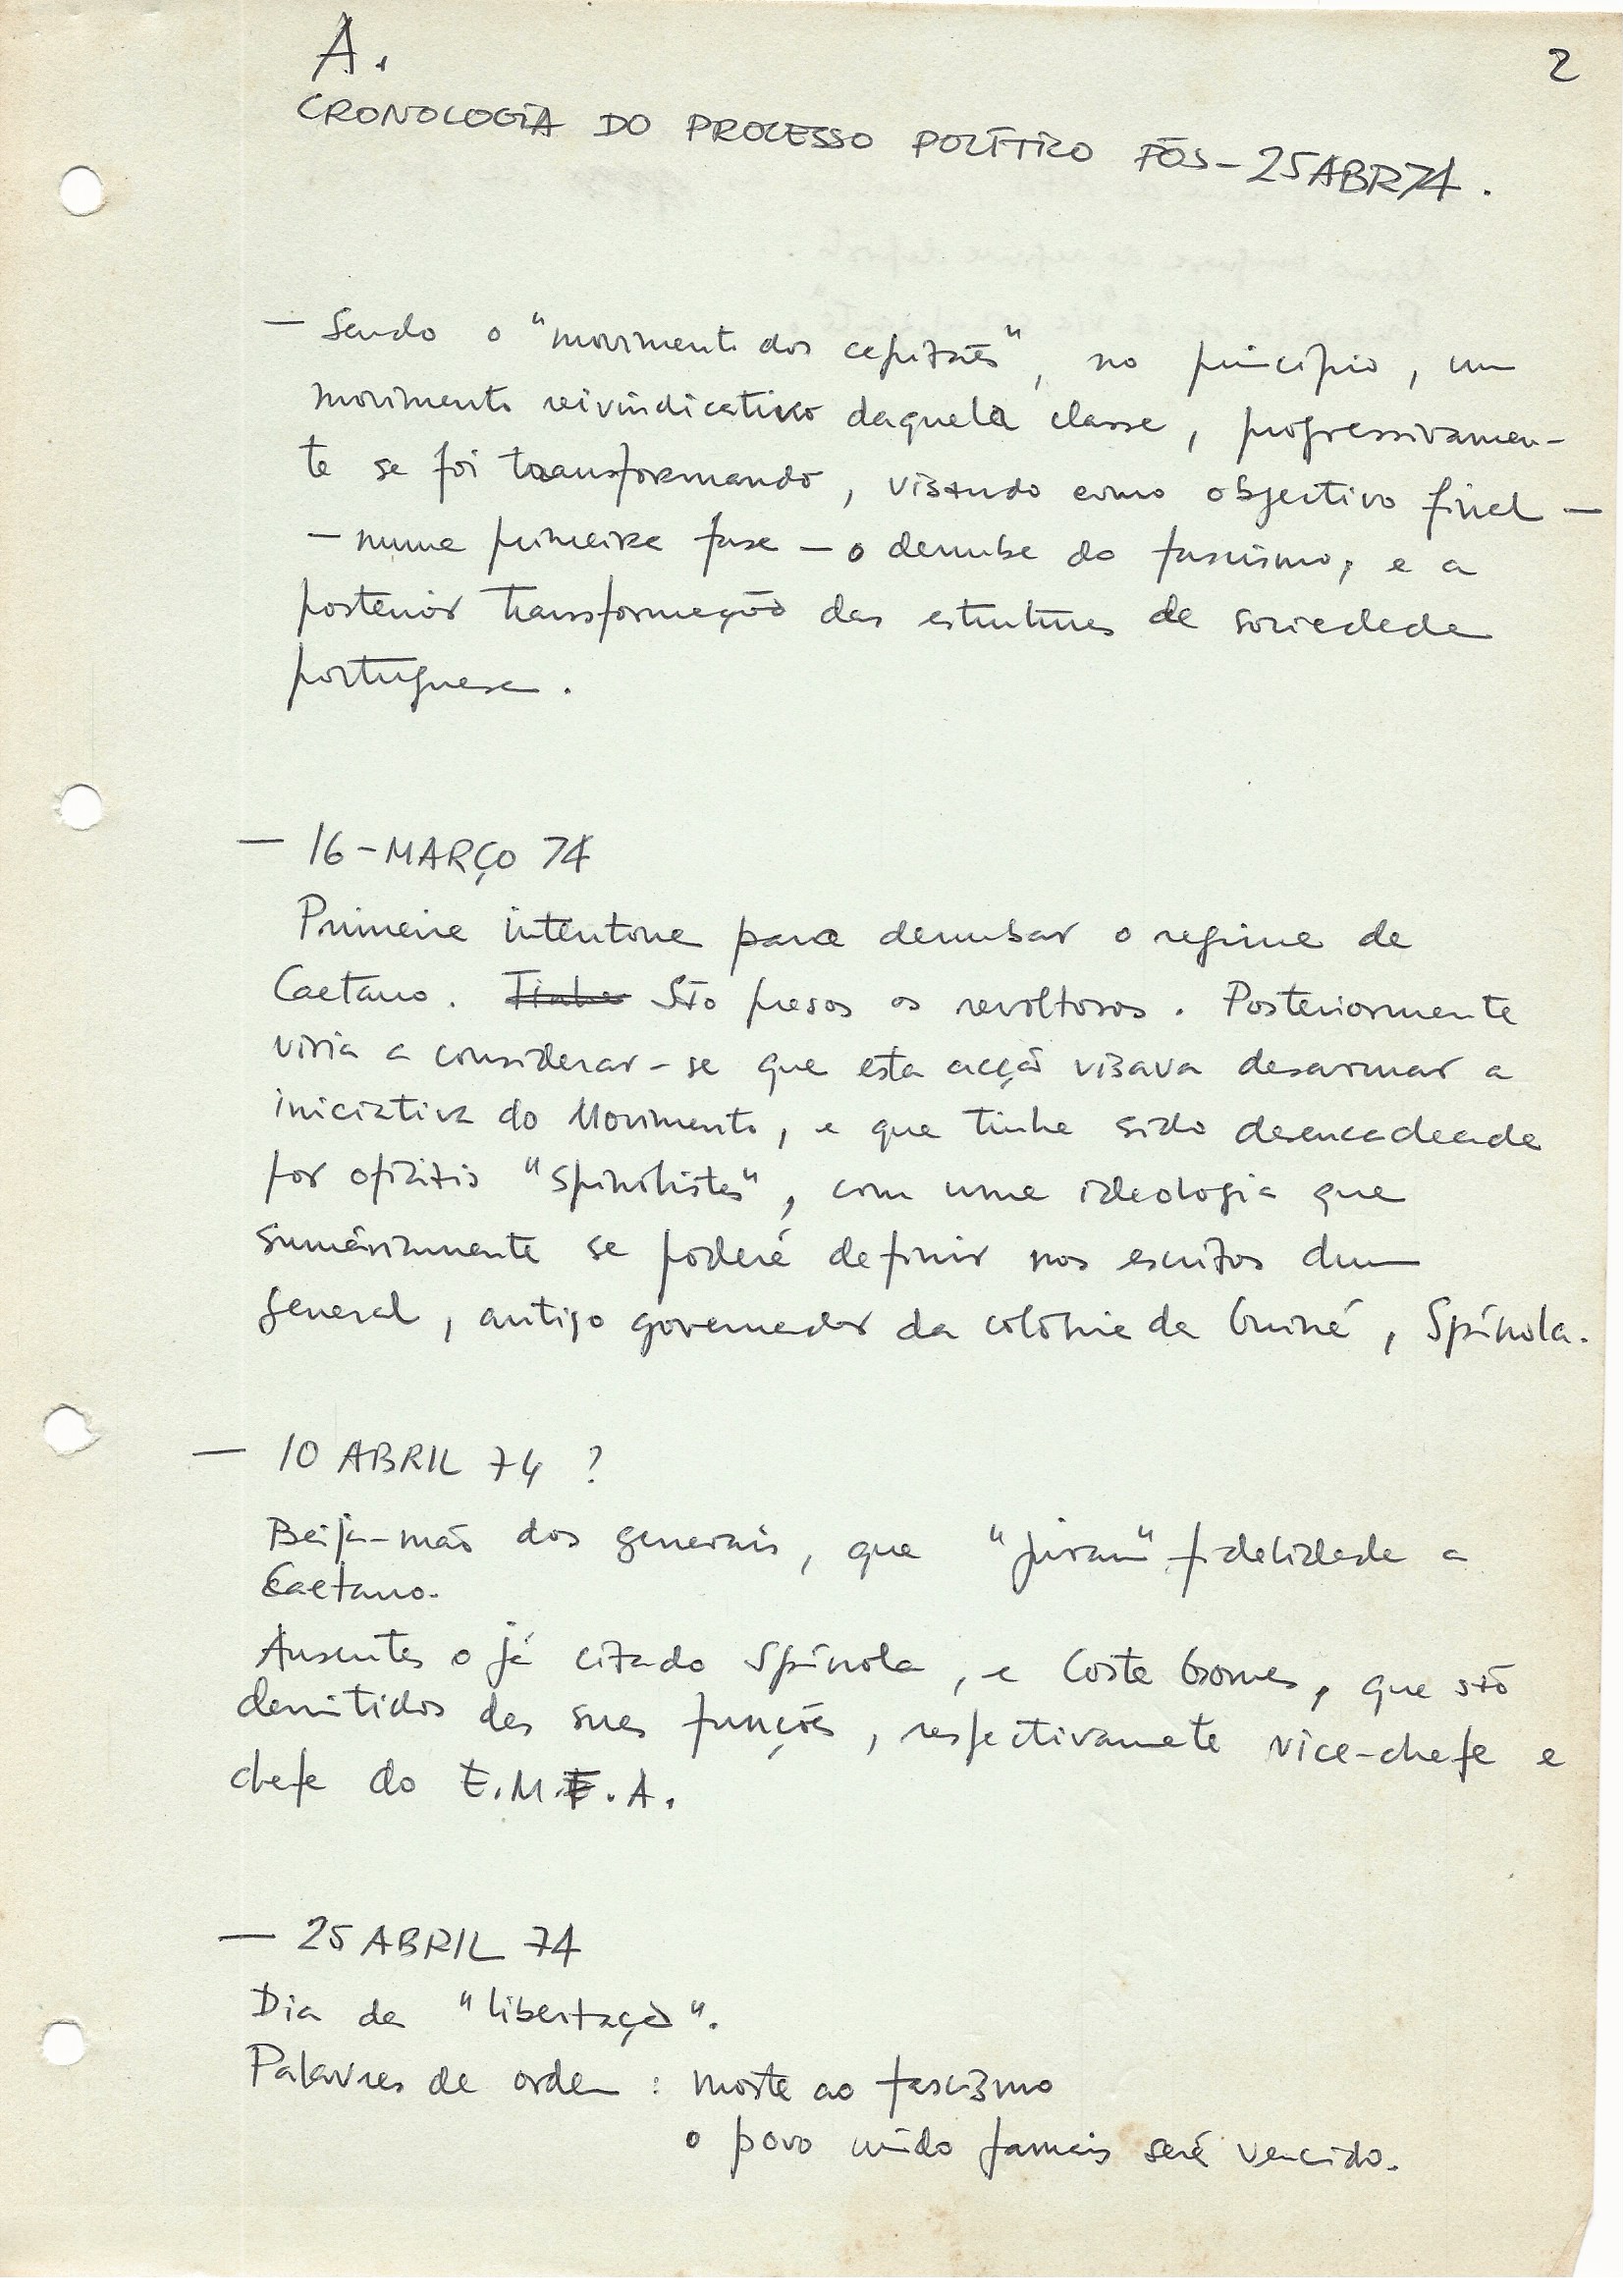 A.
2
CRONOLOGIA DO PROCESSO POLÍTICO PÓS-25ABR74.
— Sendo o "movimento dos capitães", no princípio, um
movimento reivindicativo daquela classe, progressivamen-
te se foi transformando, visando como objectivo final —
— numa primeira fase — o derrube do fascismo, e a
posterior transformação das estruturas de sociedade
portuguesa.
— 16-MARÇO 74
Primeira intentona para derrubar o regime de
Caetano. Tinha São presos os revoltosos. Posteriormente
viria a considerar-se que esta acção visava desarmar a
iniciativa do Movimento, e que tinha sido desencadeada
por oficiais "spinolistas", com uma ideologia que
sumáriamente se poderá definir nos escritos dum
general, antigo governador da colónia da Guiné, Spínola.
— 10 ABRIL 74 ?
Beija-mão dos generais, que "juram" fidelidade a
Caetano.
Ausentes o já citado Spínola, e Costa Gomes, que são
demitidos das suas funções, respectivamete vice-chefe e
chefe do E.M.F.A.
— 25 ABRIL 74
Dia da "libertação".
Palavras de ordem : morte ao fascismo
o povo unido jamais será vencido.